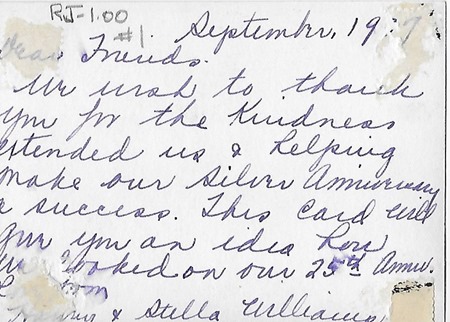 RJ-1.00
#1
September, 19
Dear Friends.
We wish to thank
you for the Kindness
extended us & helping
make our Silver Anniversary
a success. This Card Will
give you an idea how
we looked on our 25th Anniv.
& Stella Williams